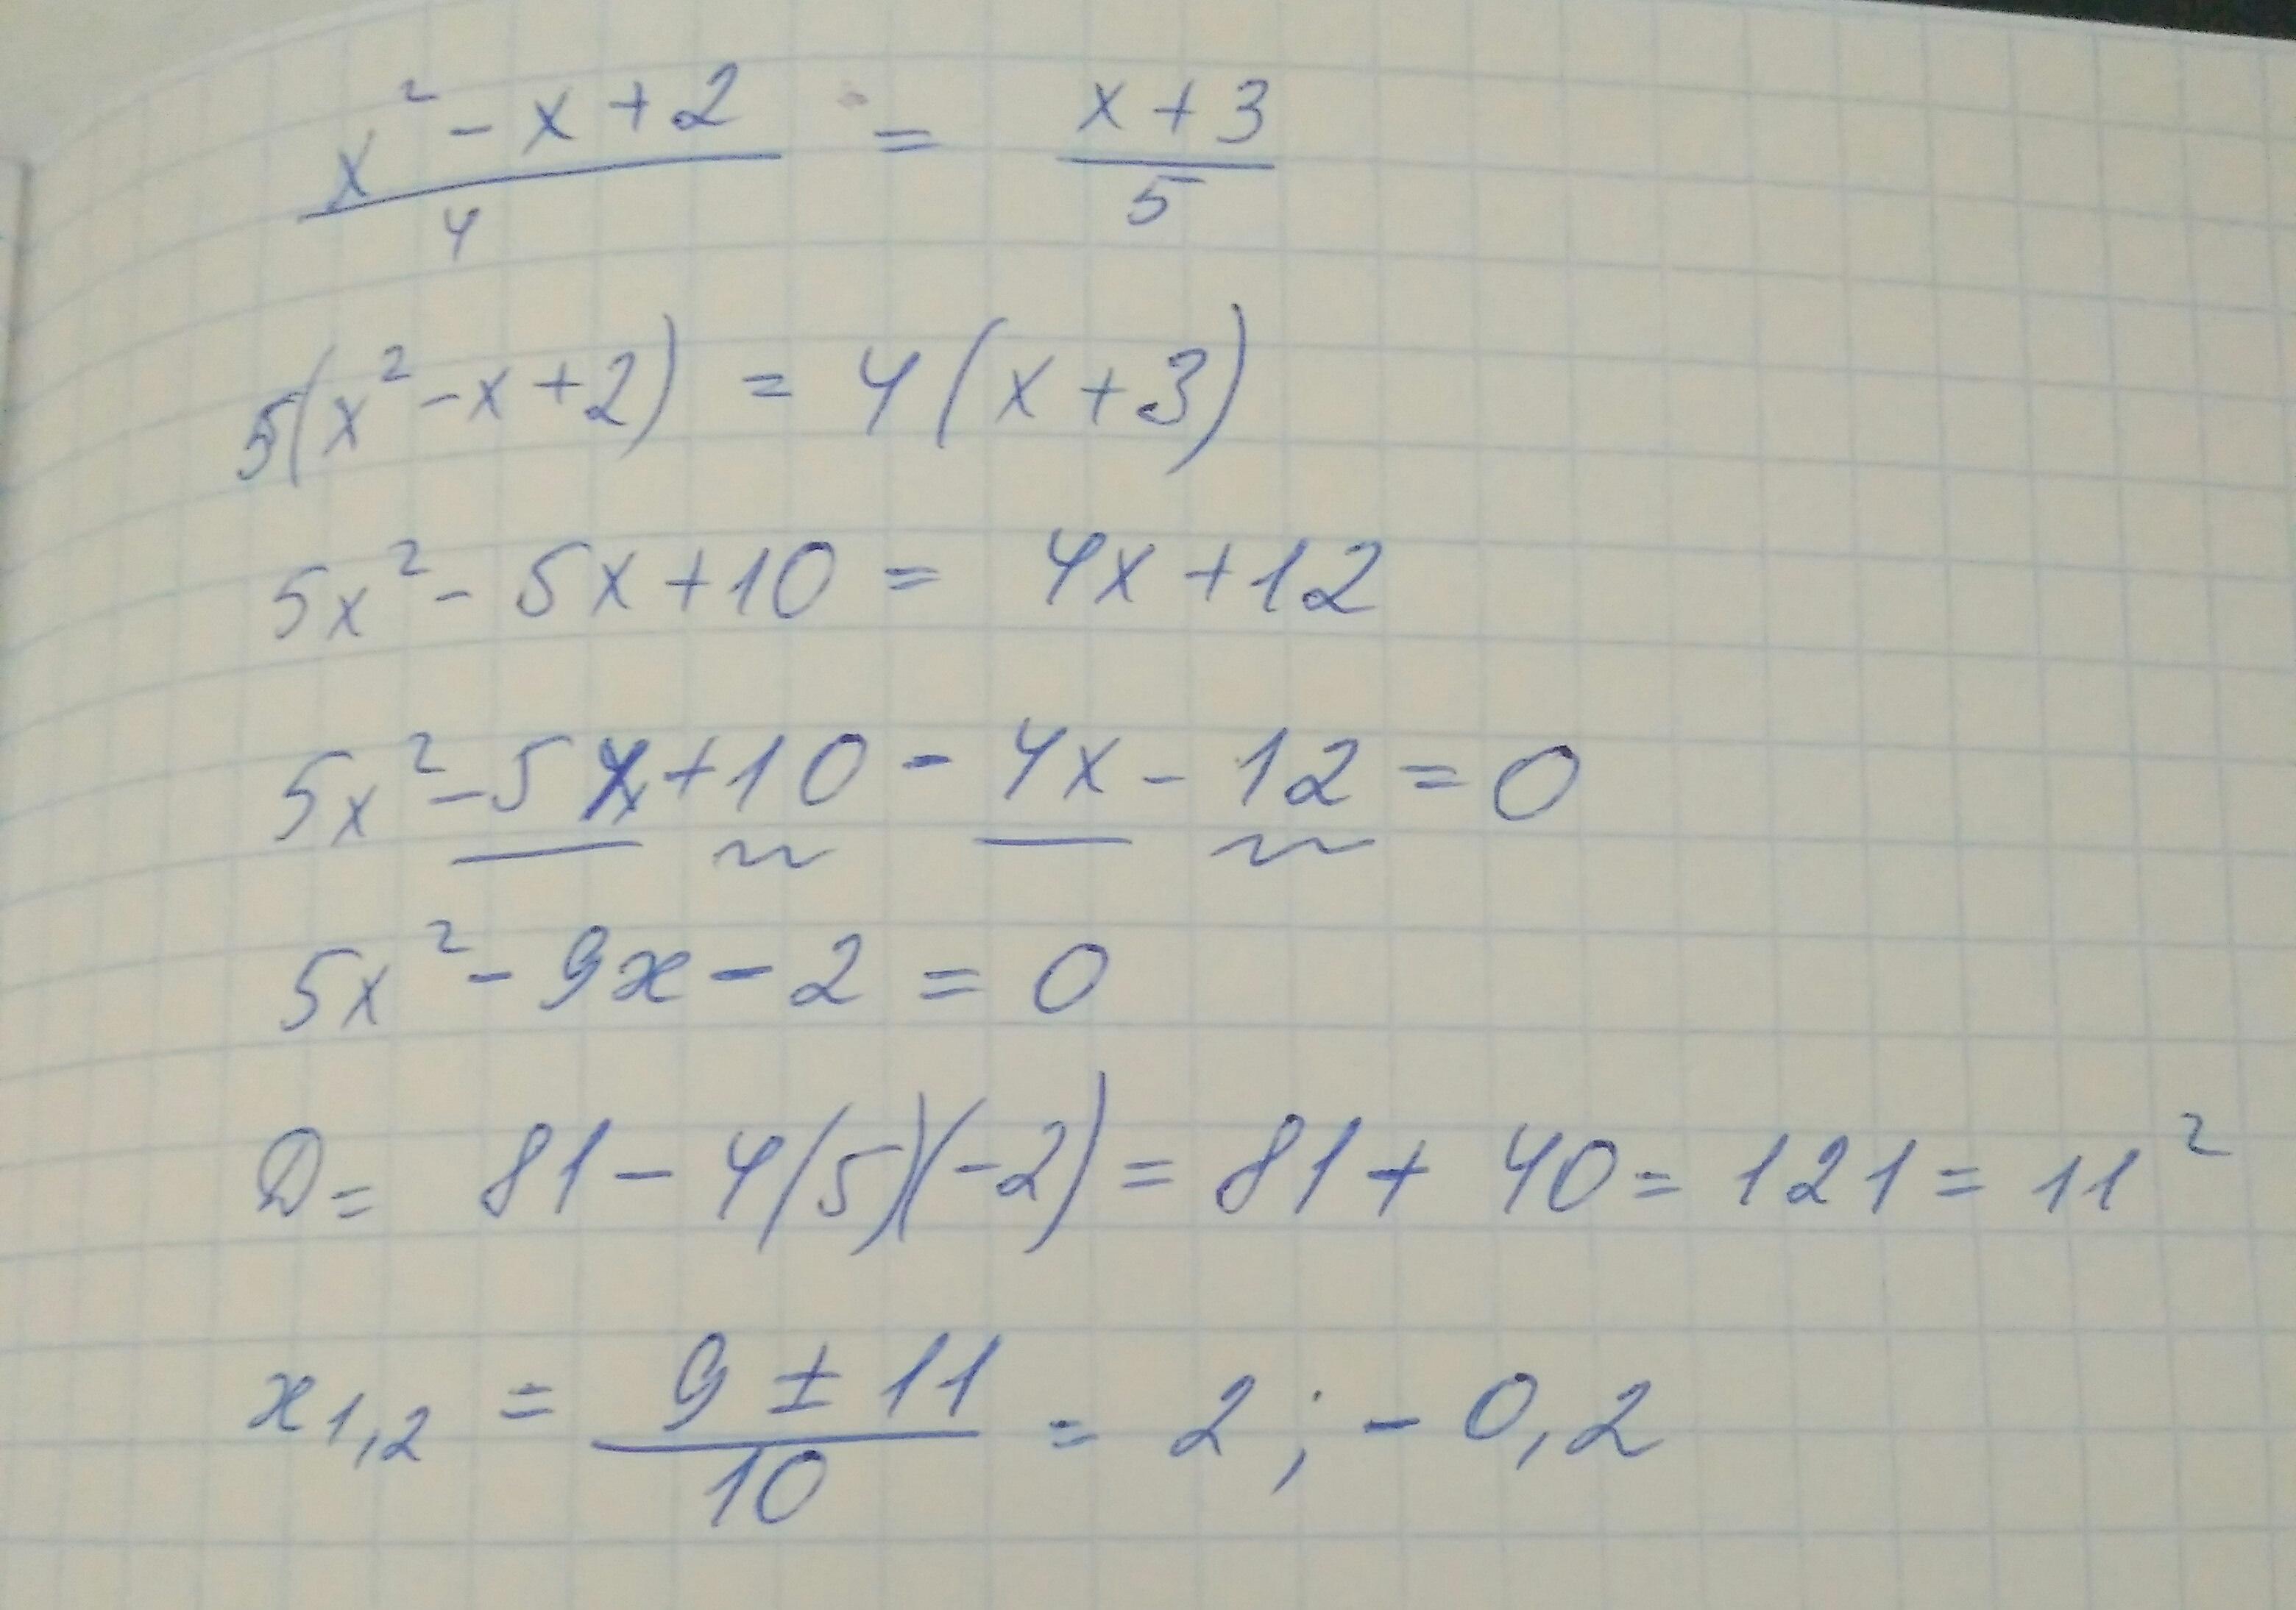 (x² - x + 2)/4 = (x + 3)/5
5(x² - x + 2) = 4(x + 3)
5x² - 5x + 10 = 4x + 12
5x² - 5x + 10 - 4x - 12 = 0
5x² - 9x - 2 = 0
D = 81 - 4(5)(-2) = 81 + 40 = 121 = 11²
x₁,₂ = (9 ± 11)/10 = 2; -0,2